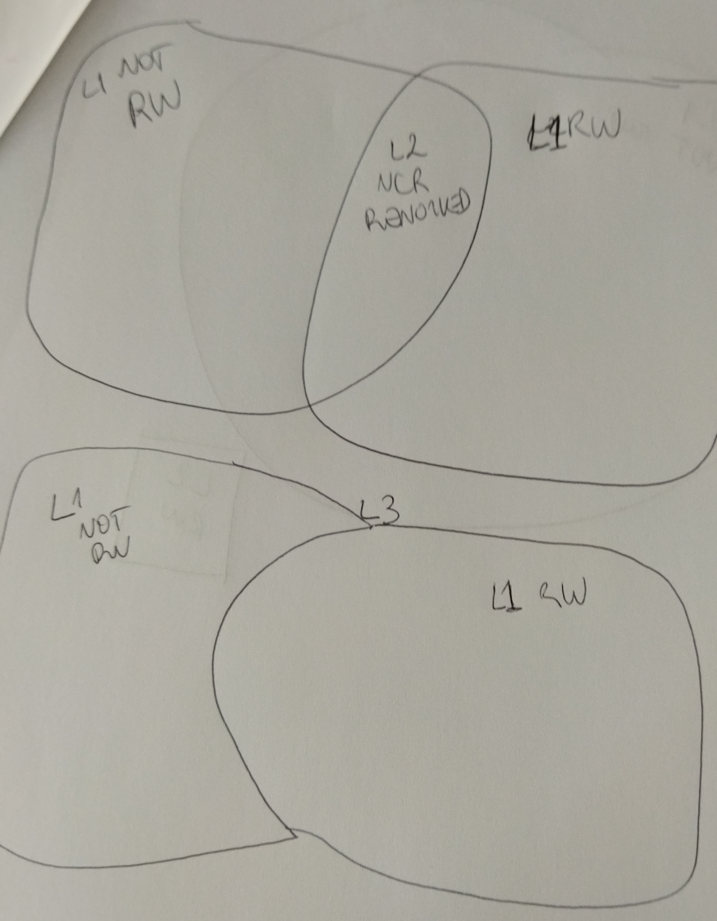 L1 NOT
RW
L2
NCR
REWORKED
L1 RW
L1
NOT
RW
L3
L1 RW